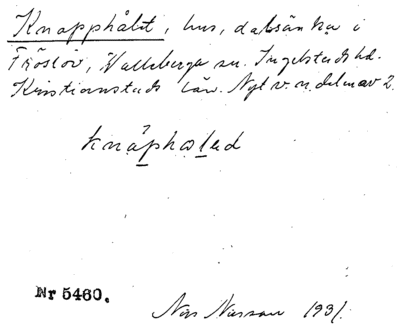 Knapphålt, hus, dalsänka i
Fröslöv, Valleberga sn. Ingelstads hd.
Kristianstads län. Nyl v. n. delen av 2.
knåpholed
Nr 5460.
Nils 1931.